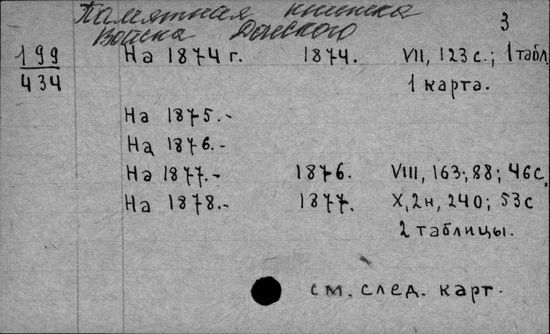 Памятная книжка 3
Войска Донского
199 На 1874 г. 1874. VII, 123 с.; 1 табл,
434 1 карта.
На 1875.-
На 1876.-
На 1877.- 1876. VIII, 163; 88; 46 с.
На 1878.- 1877. X, 2н, 240; 53 с
2 таблицы.
см. след. карт.